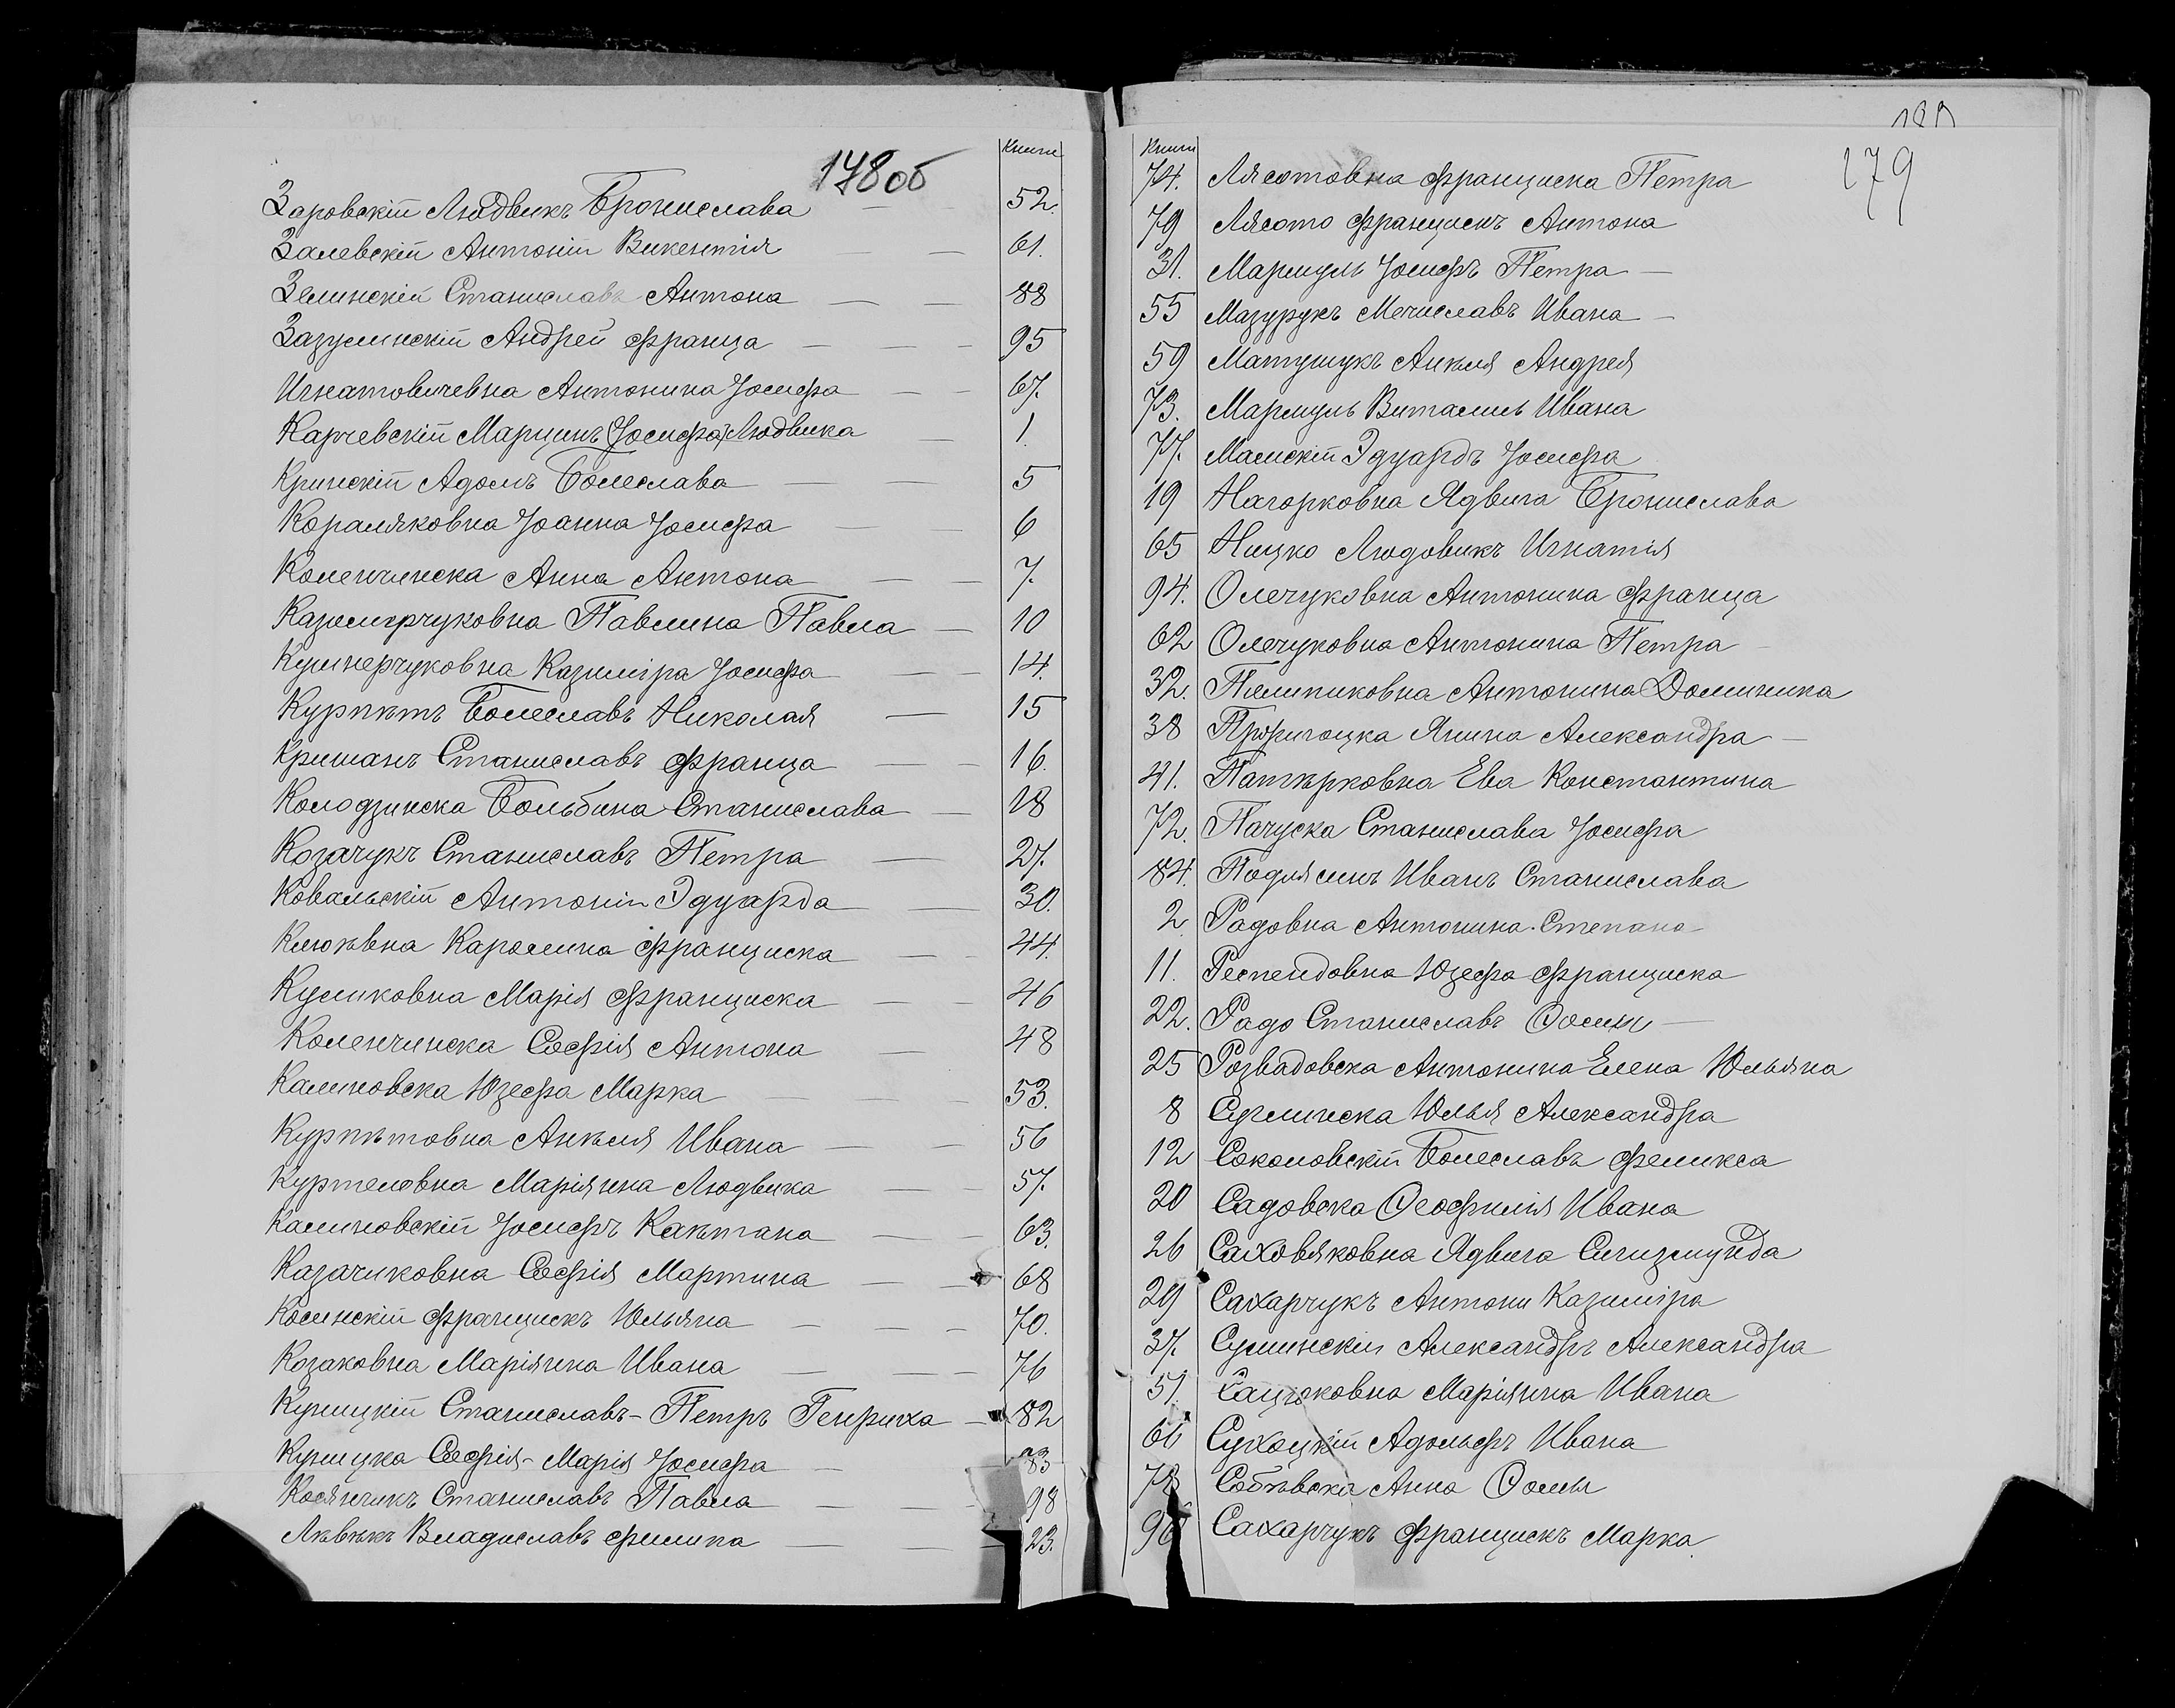 178об
Книги
Заровскій Людвикъ Бронислава 52.
Залевскій Антоній Викентія 61.
Зелинскій Станиславъ Антона 88
Зазулинскій Андрей Франца 95
Игнатовичевна Антонина Іосифа 67.
Карчевскій Марцинъ (Іосифа) Людвика 1.
Кринскій Адомъ Болеслава 5
Кораляковна Іоанна Іосифа 6
Коленчинска Анна Антона 7.
Казимірчуковна Павлина Павла 10
Кушнерчуковна Казиміра Іосифа 14.
Курпѣтъ Болеславъ Николая 15
Кришанъ Станиславъ Франца 16.
Колодзинска Больбина Станислава 18
Козачукъ Станиславъ Петра 27.
Ковальскій Антоній Эдуарда 30.
Клюкѣвна Каролина Франциска 44.
Куликовна Марія Франциска 46
Коленчинска Софія Антона 48
Калиновска Юзефа Марка 53.
Курпѣтовна Анѣля Ивана 56
Куртеловна Маріянна Людвика 57.
Калиновскій Іосифъ Каѣтана 63.
Казачиковна Софія Мартина 68
Косинскій Францискъ Юльяна 70.
Козаковна Маріянна Ивана 76
Куницкій Станиславъ-Петръ Генриха 82
Куницка Софія-Марія Іосифа 83
Косянчикъ Станиславъ Павла 98
Лѣвѣкъ Владиславъ Филипа 23.
179
Книги
74. Лясотовна Франциска Петра
79 Лясото Францискъ Антона
31. Мармуль Іосифъ Петра
55 Мазурукъ Мечиславъ Ивана
59 Матушукъ Анѣля Андрея
73. Мармуль Виталисъ Ивана
77. Малискій Эдуардъ Іосифа
19 Нагорковна Ядвига Бронислава
65 Ницко Людовикъ Игнатія
94. Олечуковна Антонина Франца
62 Олечуковна Антонина Петра
32. Пилипиковна Антонина Доминика
38 Янина Александра
41. Патѣрковна Ева Константина
72. Пачуска Станислава Іосифа
84. Подлясинъ Иванъ Станислава
2. Радовна Антонина Степана
11. Респендовна Юзефа Франциска
22. Радо Станиславъ Ѳомы
25 Розвадовска Антонина Елена Юльяна
8 Суглинска Юлья Александра
12 Соколовскій Болеславъ Феликса
20 Садовска Ѳеофилія Ивана
26 Саховяковна Ядвига Сигизмунда
29 Сахарчукъ Антони Казиміра
37. Сулинскій Александръ Александра
51. Сацюковна Маріянна Ивана
66 Сухоцкій Адольфъ Ивана
78 Собѣвска Анна Ѳомы
96 Сахарчукъ Францискъ Марка